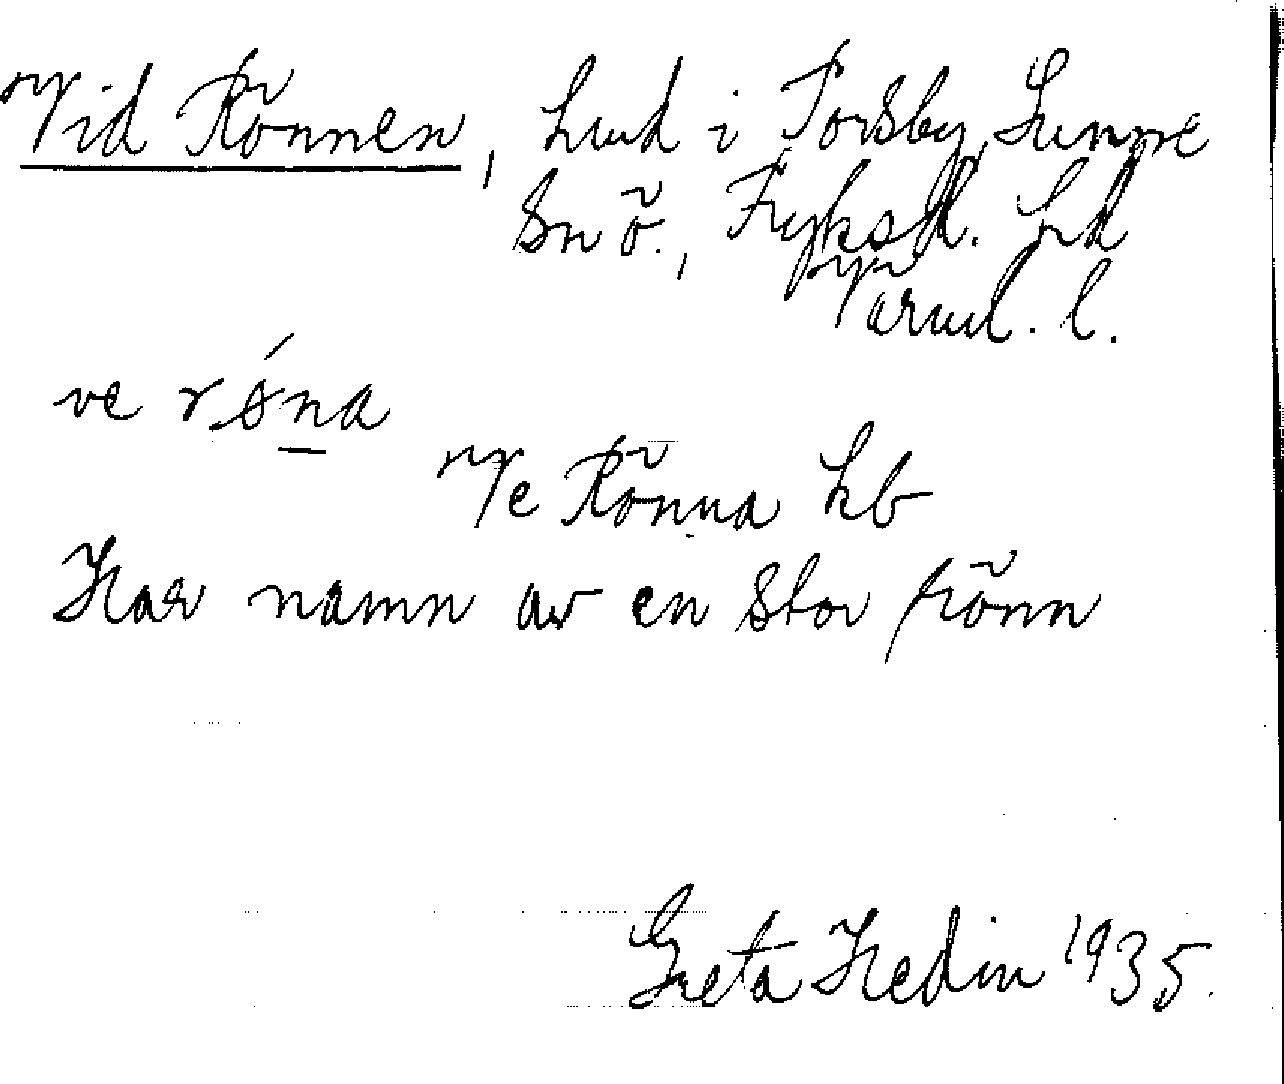 Vid Rönnen, hmd i Torsby, Sunne
sn ö., Fryksd. hd
Värml. l.
ve rǿna
Ve Rönna kb
Har namn av en stor rönn
Greta Hedin 1935.